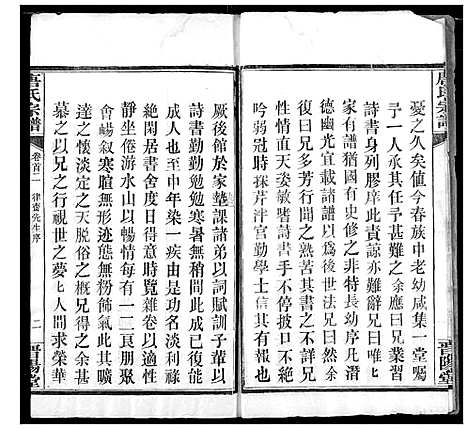 唐氏宗譜
晋陽堂
憂之久矣値今春族中老幼咸集一堂囑
予一人承修予甚難之余應曰兄業習
詩書身列膠庠此責諒亦難辭兄曰唯唯
家有譜猶國有史修之非特長幼尊卑
德幽光宜載諸譜以爲後世法兄曰然余
復曰兄多芳行聞之熟苦其書之不詳兄
性情直天姿敏嗜詩書手不停披有
吟弱冠時採芹泮宮勤學士信其有報也
厥後館於家塾課諸弟以詞賦訓子輩以
詩書勤勤勉勉寒暑無稍間此成已復欲
成人也至中年染一疾由是功名淡利祿
絶閑居書舍度日得意時覽雜卷以適
靜坐倦游水山以暢情每有一二良朋聚
會暢叙寒暄無形迹態無粉飾氣此其豁
達之懷淡定之天脱俗之概兄得之余甚
慕之以兄之行視世之夢上人間求榮華
唐氏宗譜
卷首二
律齋先生序
二
晋陽堂